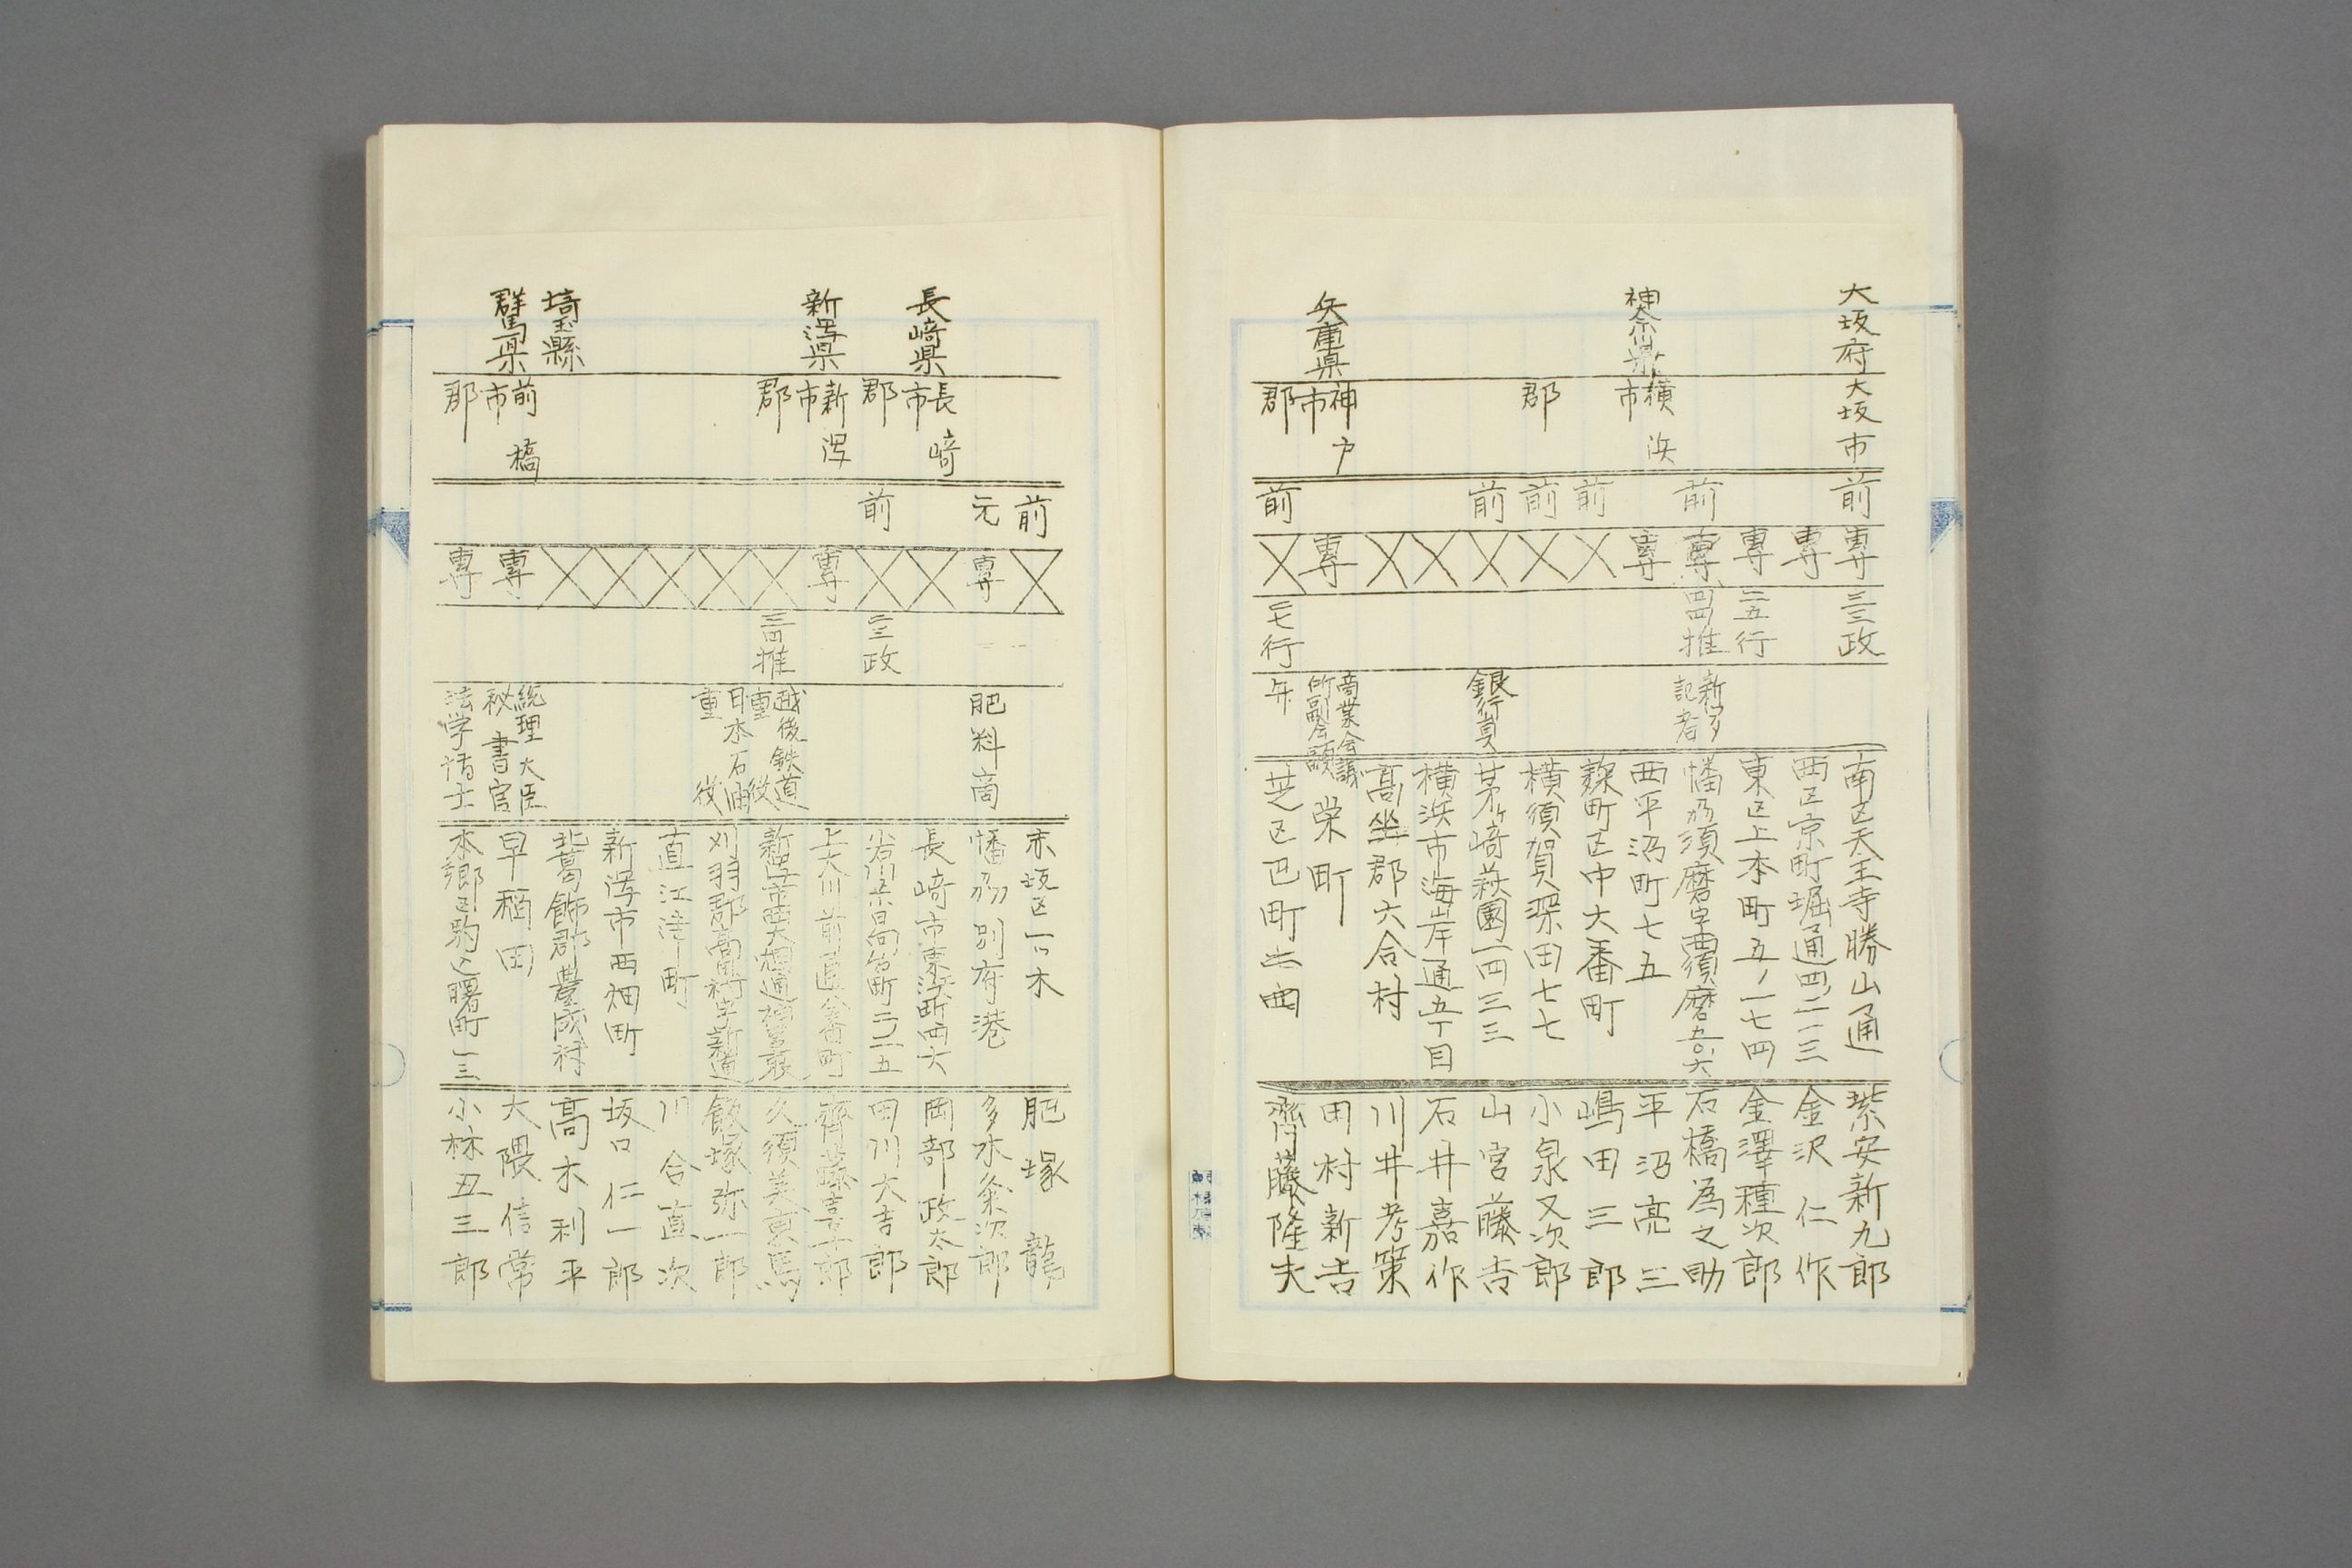 大坂府 大坂市 前 専 三三政 南区天王寺勝山通 紫安新九郎
専 西区京町堀通四ノ二一三 金沢仁作
専 二五行 東区上本町五ノ一七四 金澤種次郎
前 専 四四推 新聞記者 播州須磨字西須磨五〇六 石橋為之助
神奈川県 横浜市 専 西平沼町七五 平沼亮三
前 麹町区中六番町 嶋田三郎
郡 前 横須賀深田七七 小泉又次郎
前 銀行員 茅ヶ崎萩園一四三三 山宮藤吉
横浜市海岸通五丁目 石井嘉作
高坐郡六合村 川井考策
兵庫県 神戸市 専 商業会議所副会頭 栄町 田村新吉
郡 前 二七行 弁 芝区巴町 齊藤隆夫
前 赤坂区一ツ木 肥塚龍
元 専 肥料商 播州別府港 多木粂次郎
長崎県 長崎市 長崎市東浜町四六 岡部政太郎
郡 前 三三政 小石川茗台町 田川大吉郎
新潟県 新潟市 専 上大川前 齊藤喜十郎
郡 三四推 越後鉄道重役 新潟市 久須美東馬
日本石油重役 刈羽郡高田村字新道 飯塚弥一郎
直江津町 川合直次
新潟市西畑町 坂口仁一郎
埼玉縣 北葛飾郡豊成村 高木利平
群馬県 前橋市 専 総理大臣秘書官 早稲田 大隈信常
郡 専 法学博士 本郷区駒込曙町一三 小林丑三郎